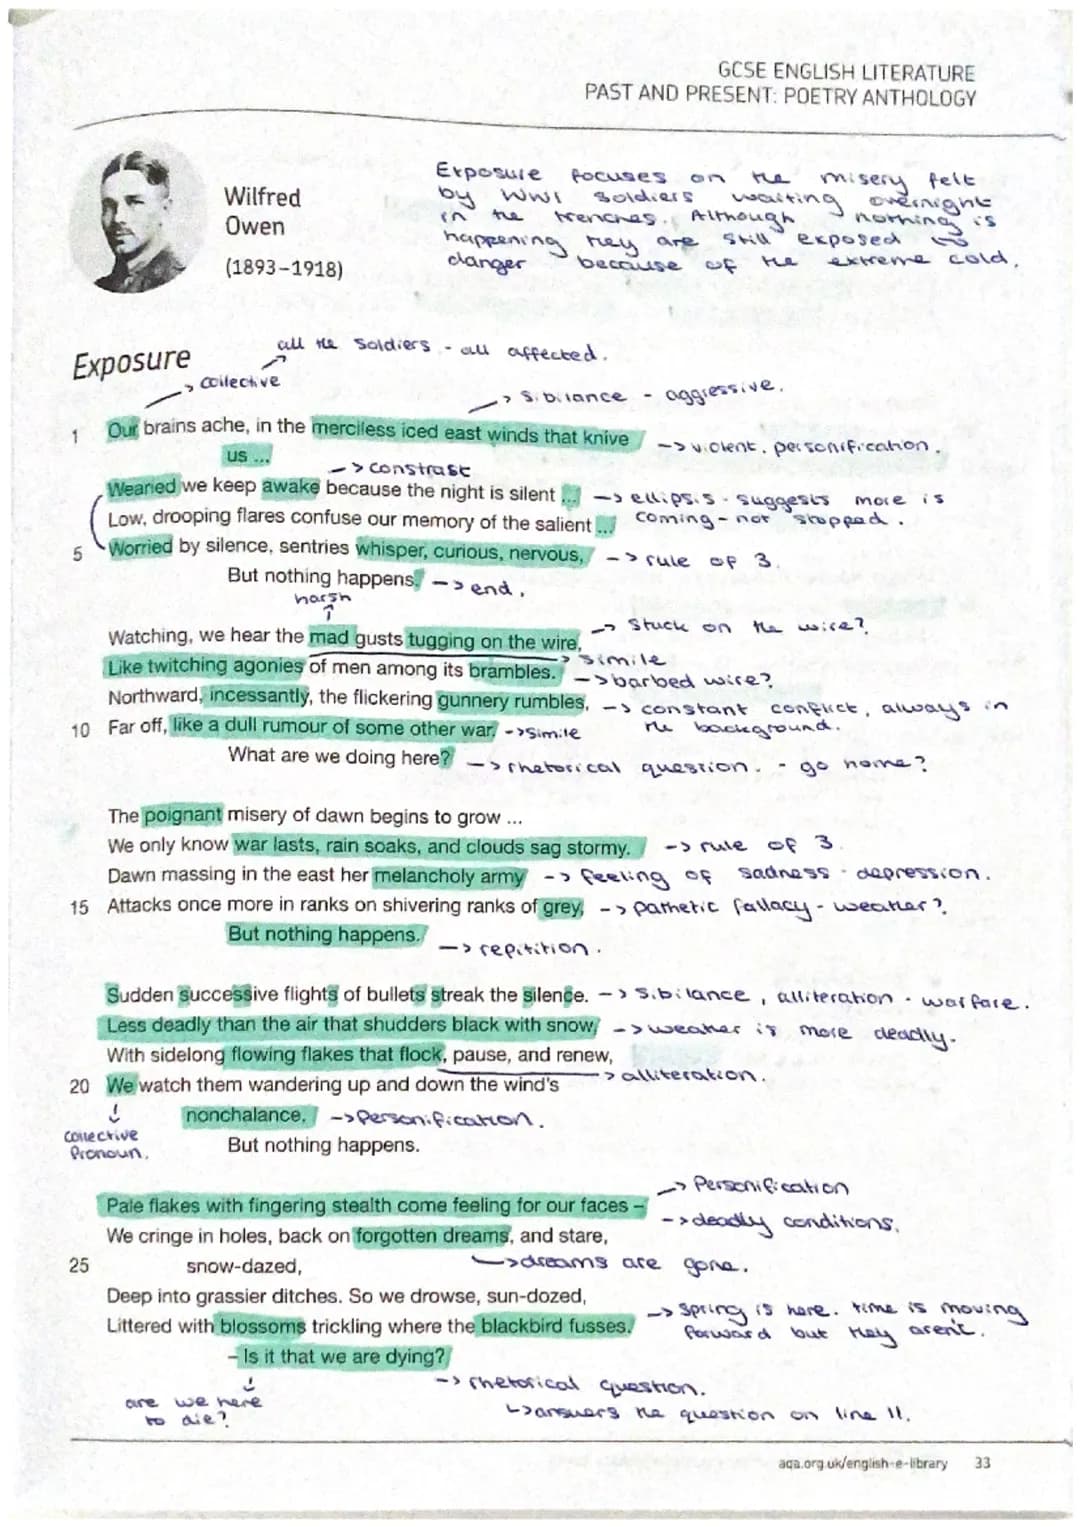 GCSE ENGLISH LITERATURE
PAST AND PRESENT: POETRY ANTHOLOGY
Wilfred
Owen
(1893–1918)
Exposure focuses on the misery felt
by WW1 soldiers waiting overnight
in the trenches. Although nothing is
happening they are still exposed to
danger because of the extreme cold.
Exposure
all the soldiers - all affected.
collective
-> Sibilance - aggressive.
1 Our brains ache, in the merciless iced east winds that knive
us ...
-> violent, personification.
-> constrast
Wearied we keep awake because the night is silent ...
-> ellipsis - suggests more is
coming - not stopped.
Low, drooping flares confuse our memory of the salient ...
5 Worried by silence, sentries whisper, curious, nervous,
-> rule of 3.
But nothing happens. -> end.
harsh
Watching, we hear the mad gusts tugging on the wire,
-> Stuck on the wire?
Like twitching agonies of men among its brambles.
-> simile
-> barbed wire?
Northward, incessantly, the flickering gunnery rumbles,
-> constant conflict, always in
the background.
10 Far off, like a dull rumour of some other war. -> Simile
What are we doing here? -> rhetorical question. - go home?
The poignant misery of dawn begins to grow ...
We only know war lasts, rain soaks, and clouds sag stormy. -> rule of 3.
Dawn massing in the east her melancholy army -> feeling of sadness - depression.
15 Attacks once more in ranks on shivering ranks of grey, -> Pathetic fallacy - weather?
But nothing happens. -> repitition.
Sudden successive flights of bullets streak the silence. -> Sibilance, alliteration - warfare.
Less deadly than the air that shudders black with snow, -> weather is more deadly.
With sidelong flowing flakes that flock, pause, and renew,
-> alliteration.
20 We watch them wandering up and down the wind's
nonchalance, -> Personification.
Collective
Pronoun.
But nothing happens.
-> Personification
Pale flakes with fingering stealth come feeling for our faces –
-> deadly conditions.
We cringe in holes, back on forgotten dreams, and stare,
25 snow-dazed,
-> dreams are gone.
Deep into grassier ditches. So we drowse, sun-dozed,
Littered with blossoms trickling where the blackbird fusses.
-> Spring is here. time is moving
forward but they aren't.
– Is it that we are dying?
-> rhetorical question.
are we here
to die?
-> answers the question on line 11.
aqa.org.uk/english-e-library 33